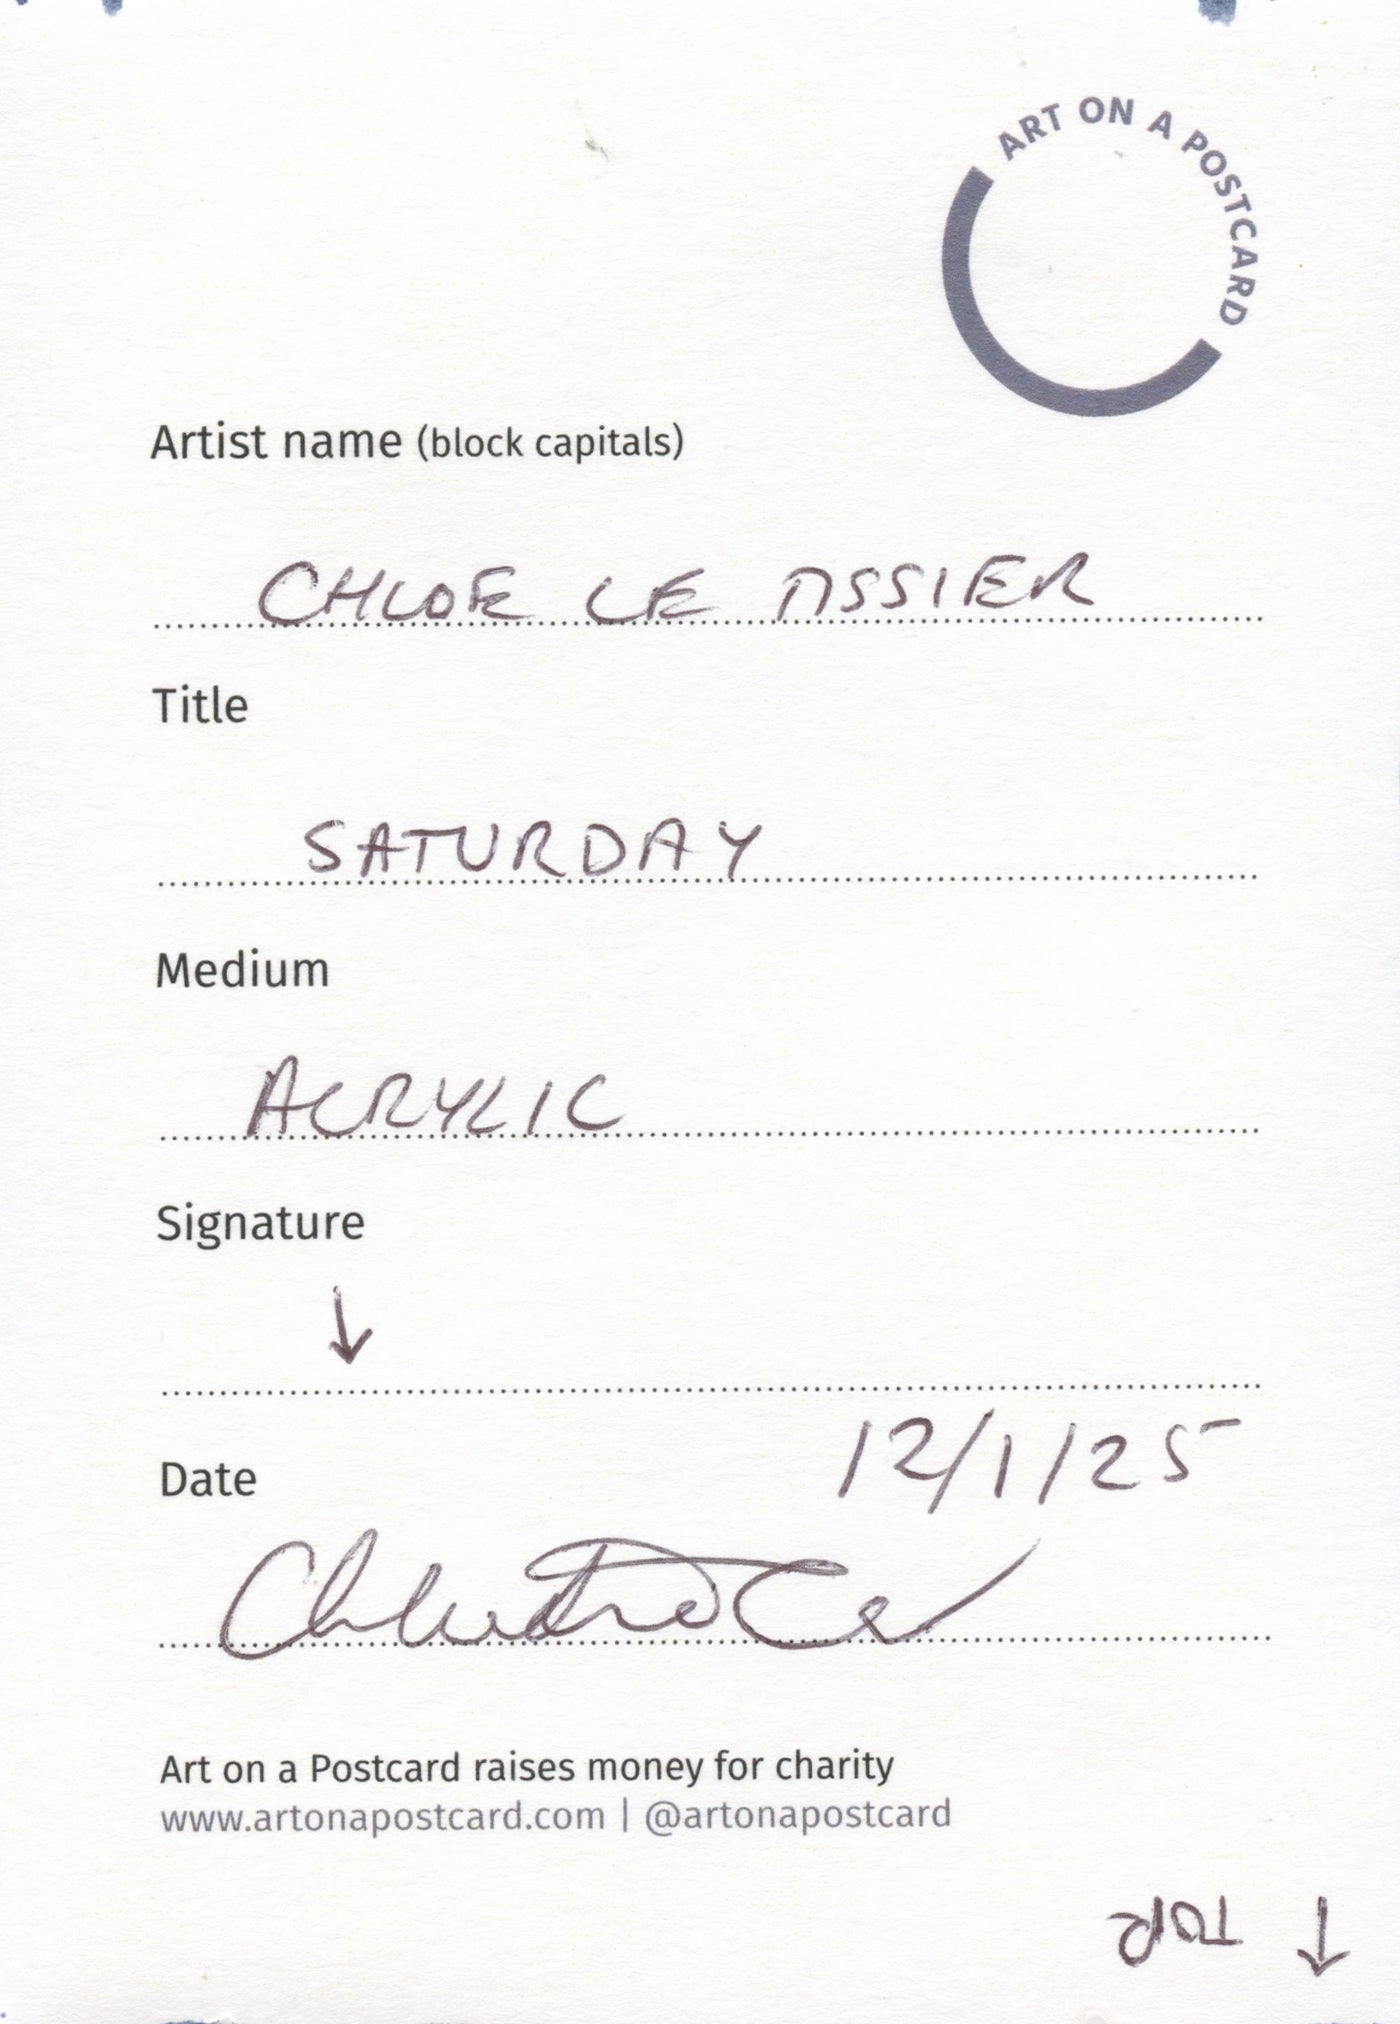 ART ON A POSTCARD
Artist name (block capitals)
CHLOE LE TISSIER
Title
SATURDAY
Medium
ACRYLIC
Signature
↓
12/1/25
Date
Art on a Postcard raises money for charity
www.artonapostcard.com | @artonapostcard
TOP ↓